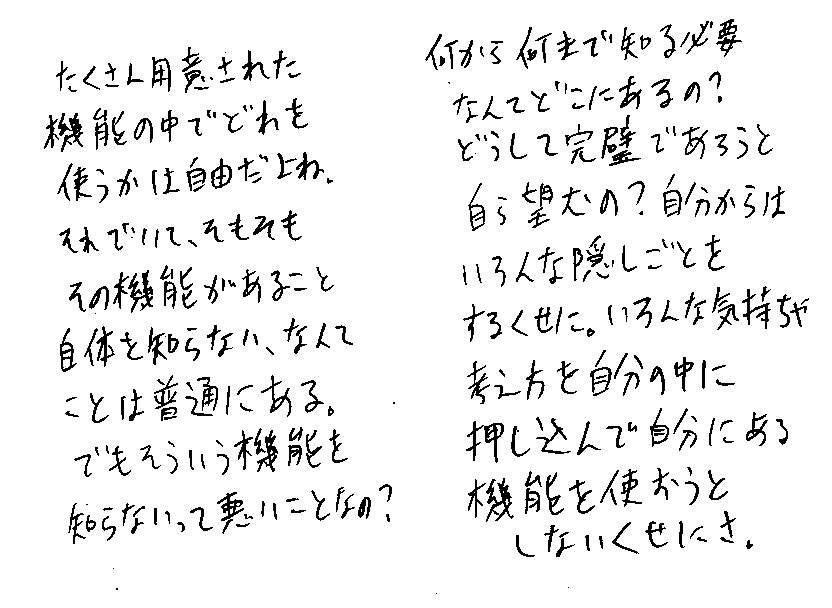 たくさん用意された
機能の中でどれを
使うかは自由だよね。
それでいて、そもそも
その機能があること
自体を知らない、なんて
ことは普通にある。
でもそういう機能を
知らないって悪いことなの?
何から何まで知る必要
なんてどこにあるの?
どうして完璧であろうと
自ら望むの?自分からは
いろんな隠しごとを
するくせに。いろんな気持ちや
考え方を自分の中に
押し込んで自分にある
機能を使おうと
しないくせにさ。